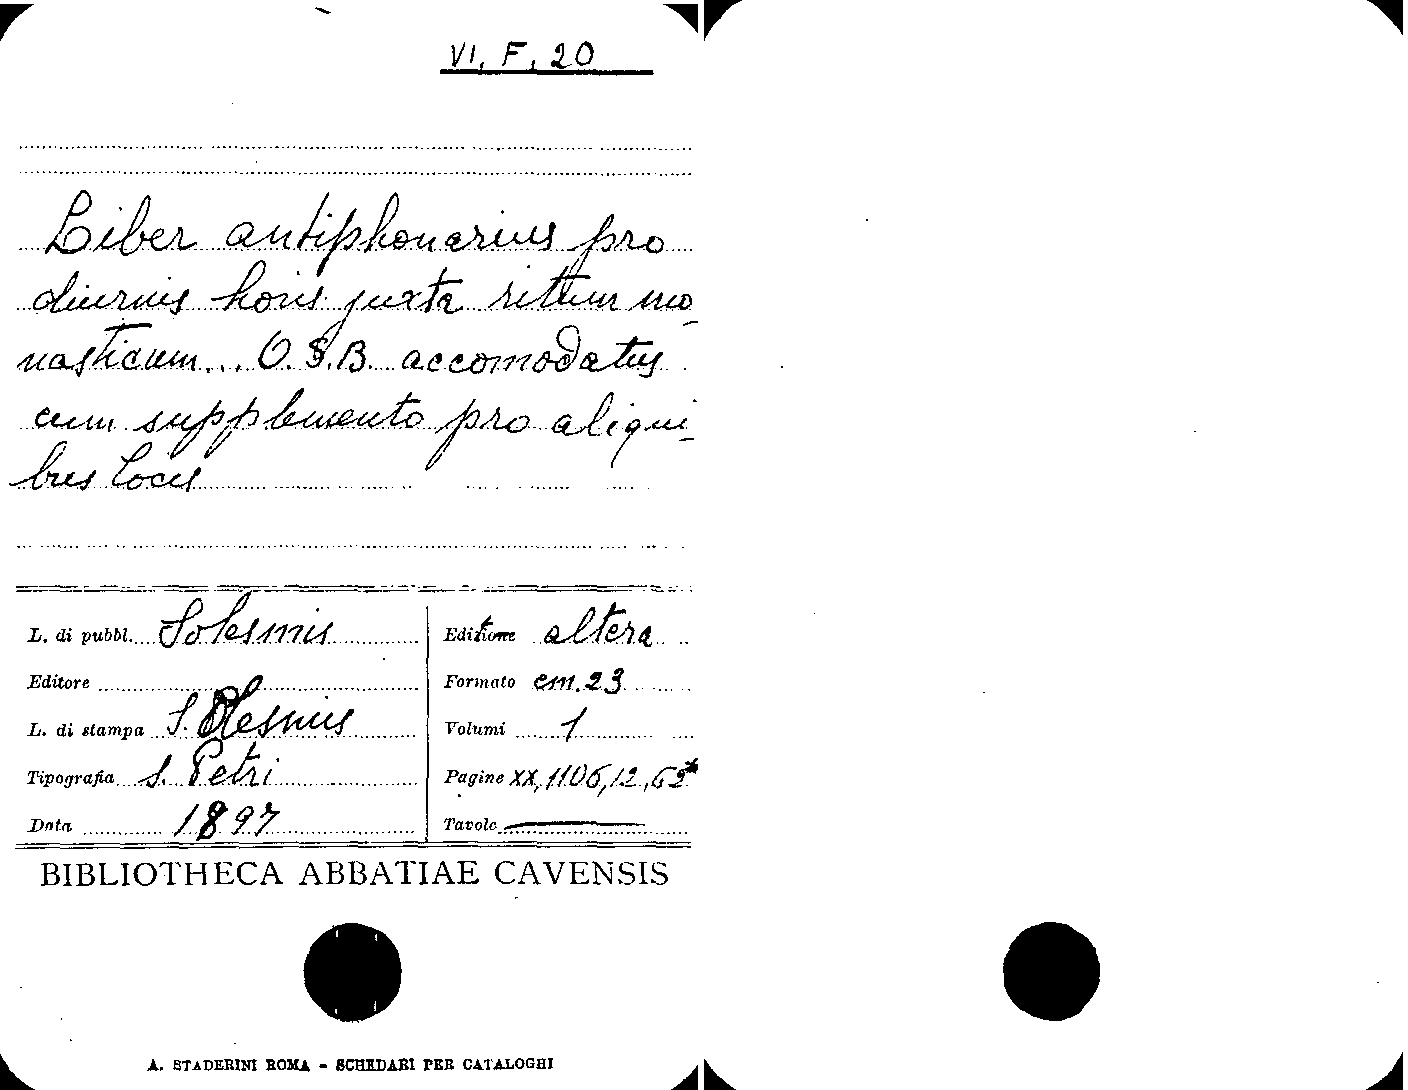 VI. F. 20
Liber antiphonarius pro
diurnis horis juxta ritum mo-
nasticum... O.S.B. accomodatus
cum supplemento pro aliqui-
bus locis
L. di pubbl. Solesmis
Editore
L. di stampa Solesmis
Tipografia S. Petri
Data 1897
Edizione altera
Formato cm. 23
Volumi 1
Pagine XX, 1106, 12, 62*
Tavole —
BIBLIOTHECA ABBATIAE CAVENSIS
A. STADERINI ROMA - SCHEDARI PER CATALOGHI